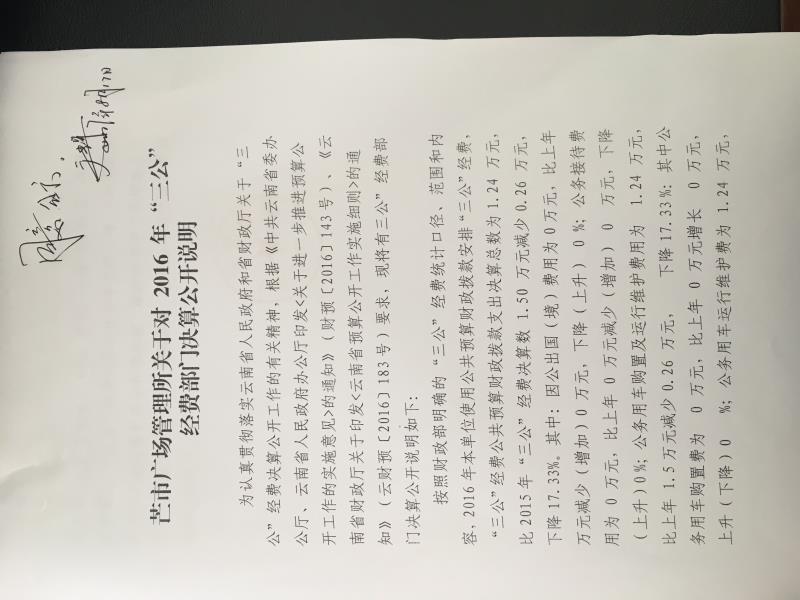 同意公示。
芒市广场管理所关于对 2016 年“三公”
经费部门决算公开说明
为认真贯彻落实云南省人民政府和省财政厅关于“三
公”经费决算公开工作的有关精神，根据《中共云南省委办
公厅、云南省人民政府办公厅印发<关于进一步推进预算公
开工作的实施意见>的通知》（财预〔2016〕143 号）、《云
南省财政厅关于印发<云南省预算公开工作实施细则>的通
知》（云财预〔2016〕183 号）要求，现将有三公”经费部
门决算公开说明如下：
按照财政部明确的“三公”经费统计口径、范围和内
容，2016 年本单位使用公共预算财政拨款安排“三公”经费，
“三公”经费公共预算财政拨款支出决算总数为 1.24 万元，
比 2015 年“三公”经费决算数 1.50 万元减少 0.26 万元，
下降 17.33%。其中：因公出国（境）费用为 0 万元，比上年
万元减少（增加）0 万元，下降（上升） 0 %；公务接待费
用为 0 万元，比上年 0 万元减少（增加） 0 万元，下降
（上升）0%；公务用车购置及运行维护费用为 1.24 万元，
比上年 1.5 万元减少 0.26 万元， 下降 17.33%；其中公
务用车购置费为 0 万元，比上年 0 万元增长 0 万元，
上升（下降）0 %；公务用车运行维护费为 1.24 万元，